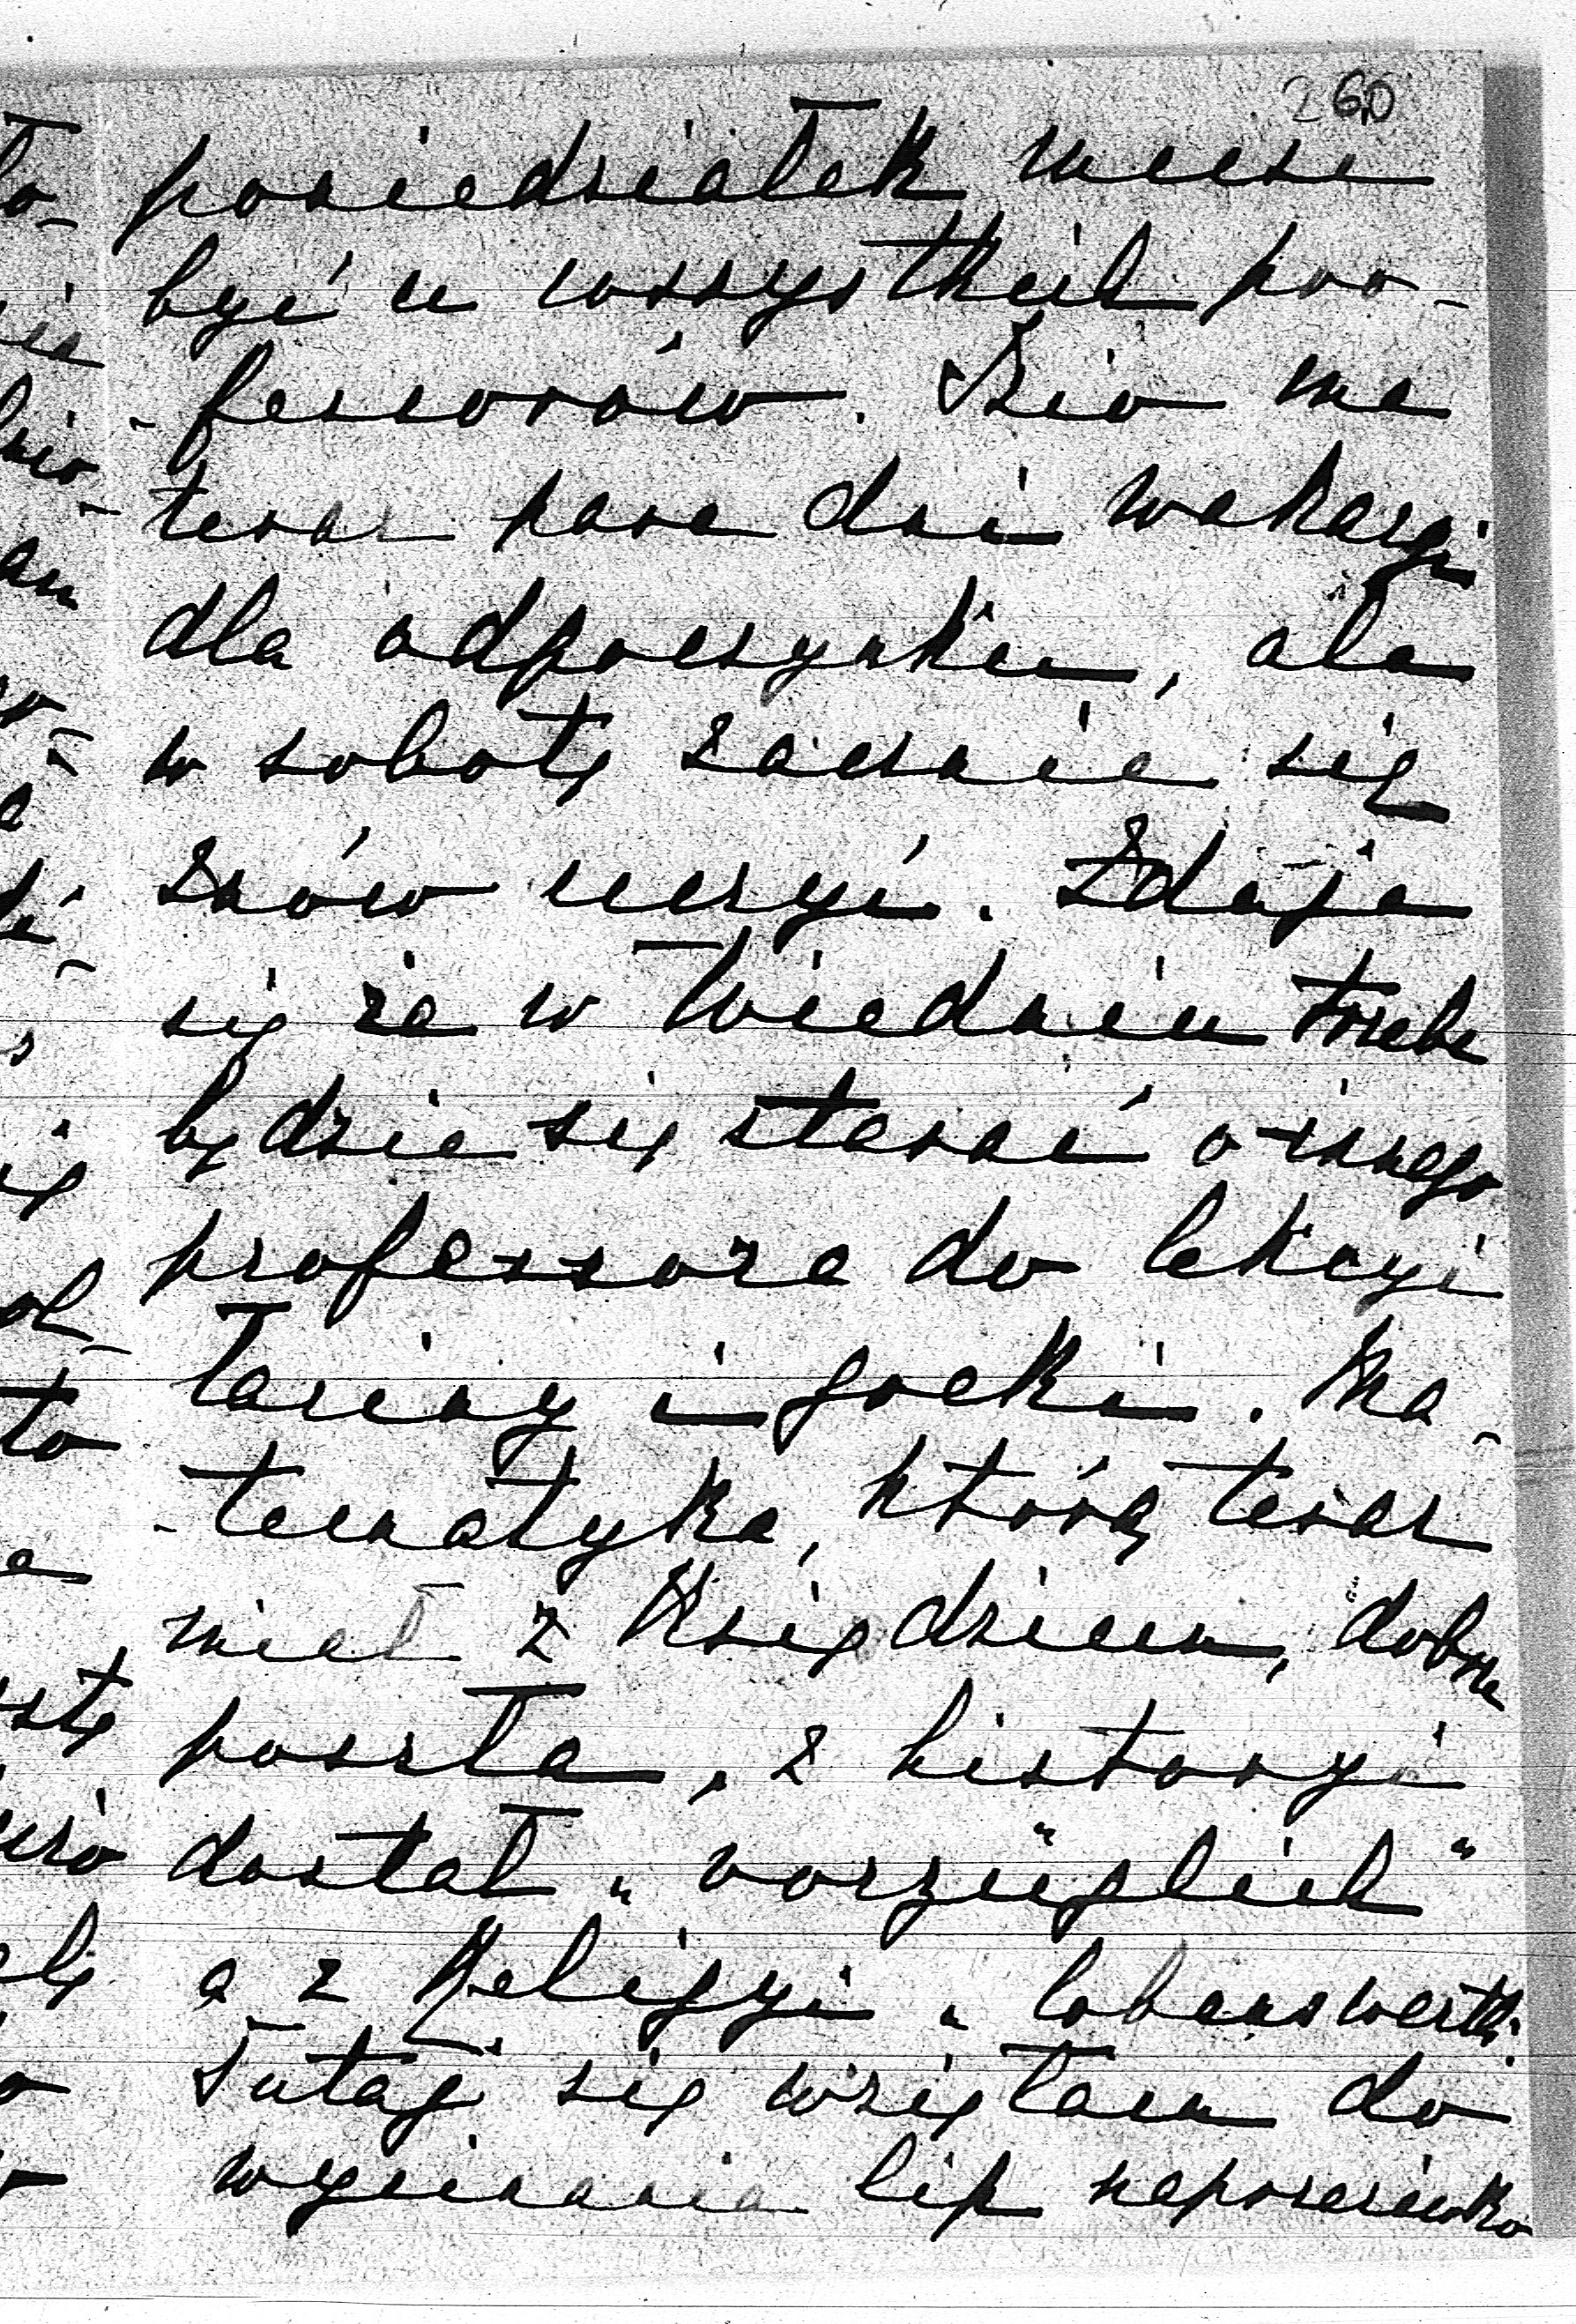 260
poniedziałek musi
być u wszystkich pro-
-fessorów. Sio ma
teraz pare dni wakacyi
dla odpoczynku, ale
w sobotę zacznie się
znów uczyć. Zdaje
się że w Wiedniu trzeba
będzie się starać o innego
professora do lekcyi
łaciny i greki. Ma-
-tematyka, którą teraz
miał z Księdzem, dobrze
poszła, z historyi
dostał „vorzüglich"
a z Religyi „lobenswerth.
Tutaj się wzięłam do
wycinania lip naprzeciwko